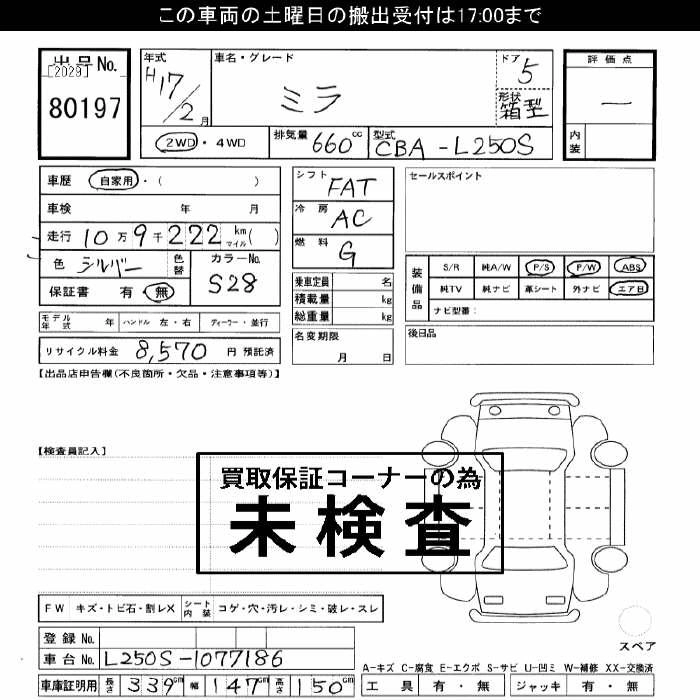 この車両の土曜日の搬出受付は17:00まで
出品No. [2029] 80197
年式 H17/2月
車名・グレード ミラ
ドア 5
形状 箱型
2WD・4WD
排気量 660cc
型式 CBA-L250S
評価点 一
内装
車歴 自家用・( )
車検 年 月
走行 10万9千222km マイル( )
色 シルバー 色替 カラーNo. S28
保証書 有・無
モデル年式 年 ハンドル 左・右 ディーラー・並行
リサイクル料金 8,570 円 預託済
シフト FAT
冷房 AC
燃料 G
乗車定員 名
積載量 kg
総重量 kg
名変期限 月 日
セールスポイント
装備品 S/R 純A/W P/S P/W ABS
純TV 純ナビ 革シート 外ナビ エアB
ナビ型番:
後日品
【出品店申告欄(不良箇所・欠品・注意事項等)】
【検査員記入】
買取保証コーナーの為
未検査
FW キズ・トビ石・割レX シート内装 コゲ・穴・汚レ・シミ・破レ・スレ
登録No.
車台No. L250S-1077186
車庫証明用 長さ 339cm 幅 147cm 高さ 150cm
スペア
A-キズ C-腐食 E-エクボ S-サビ U-凹ミ W-補修 XX-交換済
工具 有・無 ジャッキ 有・無